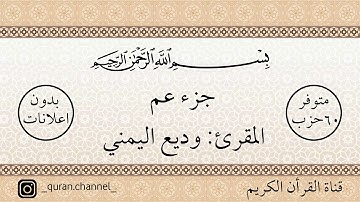 بسم الله الرحمن الرحيم
جزء عم
المقرئ: وديع اليمني
متوفر
٦٠حزب
بدون
اعلانات
_quran.channel_
قناة القرأن الكريم